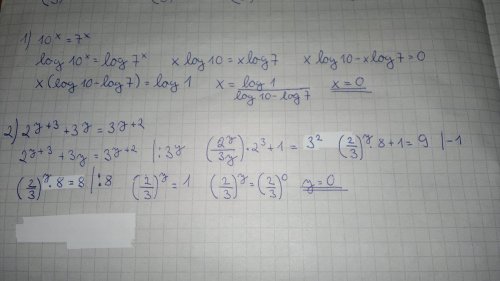 1) 10^x = 7^x
log 10^x = log 7^x   x log 10 = x log 7   x log 10 - x log 7 = 0
x (log 10 - log 7) = log 1   x = log 1 / (log 10 - log 7)   x = 0
2) 2^(y+3) + 3^y = 3^(y+2)
2^(y+3) + 3^y = 3^(y+2) | : 3^y   (2^y / 3^y) · 2^3 + 1 = 3^2   (2/3)^y · 8 + 1 = 9 | -1
(2/3)^y · 8 = 8 | : 8   (2/3)^y = 1   (2/3)^y = (2/3)^0   y = 0